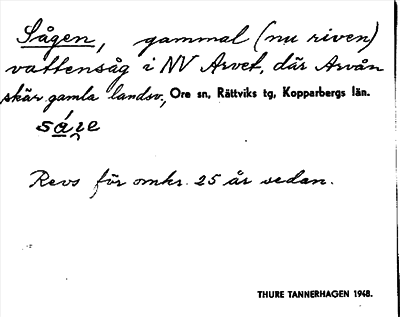 Sågen, gammal (nu riven)
vattensåg i NV Arvet, där Arvån
skär gamla landsv., Ore sn, Rättviks tg, Kopparbergs län.
Revs för omkr. 25 år sedan.
THURE TANNERHAGEN 1948.